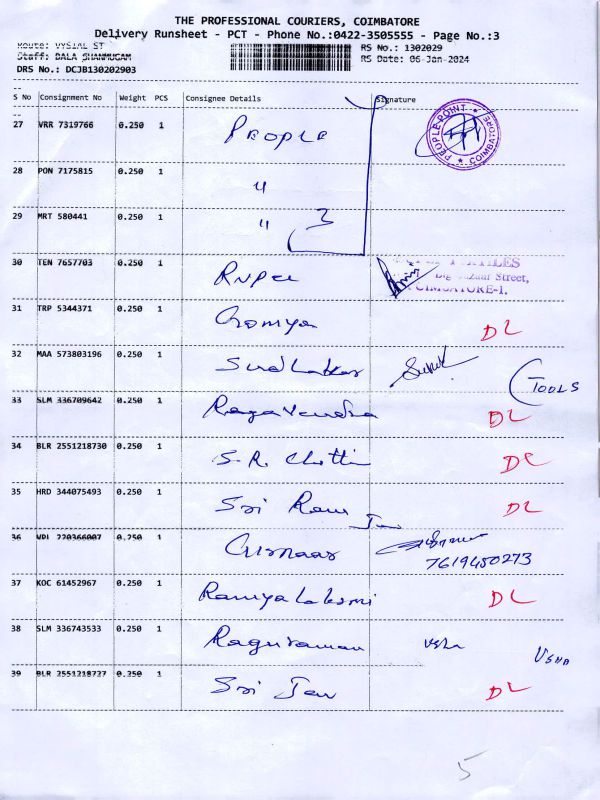 THE PROFESSIONAL COURIERS, COIMBATORE
Delivery Runsheet - PCT - Phone No.:0422-3505555 - Page No.:3
Route: VYSIAL ST
RS No.: 1302029
Staff: BALA SHANMUGAM
RS Date: 06-Jan-2024
DRS No.: DCJB130202903
S No Consignment No Weight PCS Consignee Details Signature
27 VRR 7319766 0.250 1 PEOPLE
PEOPLE-POINT ★ COIMBATORE ★
28 PON 7175815 0.250 1 "
29 MRT 580441 0.250 1 " 3
30 TEN 7657703 0.250 1 Rupee
Street,
COIMBATORE-1.
31 TRP 5344371 0.250 1 DL
32 MAA 573803196 0.250 1 Sudhakar TOOLS
33 SLM 336709642 0.250 1 Ragavendra DL
34 BLR 2551218730 0.250 1 S.R. Chetti DL
35 HRD 344075493 0.250 1 Sri Ram Jew DL
36 220366007 0.250 1 7619450273
37 KOC 61452967 0.250 1 Ramya Laksmi DL
38 SLM 336743533 0.250 1 Raguraman Usha USHA
39 BLR 2551218727 0.250 1 Sri Jew DL
5